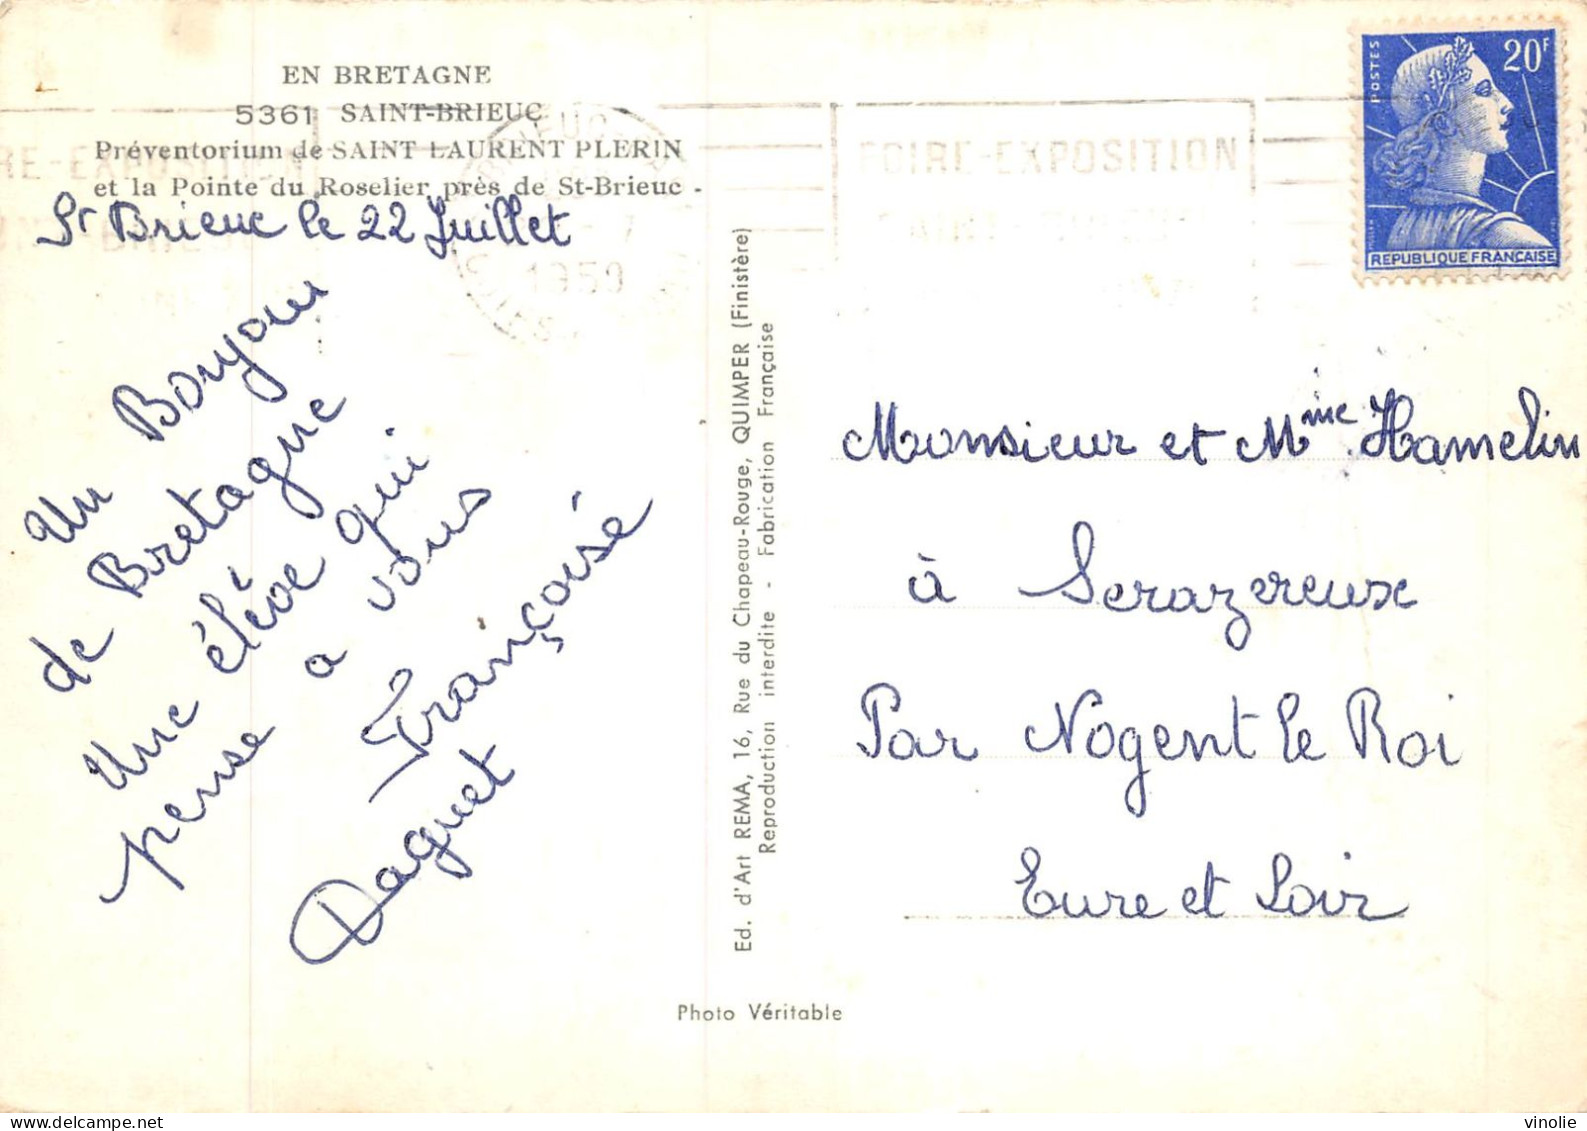 EN BRETAGNE
5361 SAINT-BRIEUC
Préventorium de SAINT LAURENT PLERIN
et la Pointe du Roselier près de St-Brieuc -
St Brieuc le 22 Juillet
Un Bonjour
de Bretagne
Une élève qui
pense a vous
Françoise
Daguet
Ed. d'Art REMA, 16, Rue du Chapeau-Rouge, QUIMPER (Finistère)
Reproduction interdite - Fabrication Française
Photo Véritable
FOIRE-EXPOSITION
1959
POSTES
20F
REPUBLIQUE FRANÇAISE
Monsieur et Mme Hamelin
à Serazereux
Par Nogent le Roi
Eure et Loir
vinolie